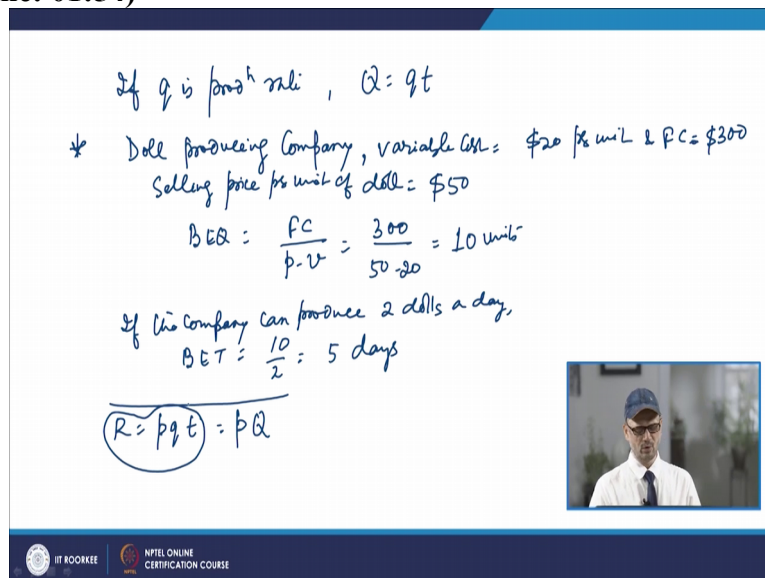 If q is prodⁿ rate, Q = qt
* Doll producing Company, variable Cost = $20 per unit & FC = $300
Selling price per unit of doll = $50
BEQ = FC / p-v = 300 / 50-20 = 10 units
If the company can produce 2 dolls a day,
BET = 10 / 2 = 5 days
R = pqt = pQ
IIT ROORKEE
NPTEL ONLINE
CERTIFICATION COURSE